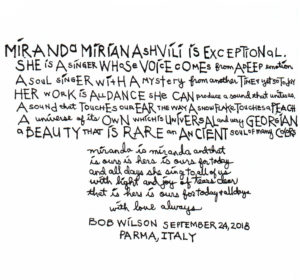 MIRANDA MIRIANASHVILI IS EXCEPTIONAL.
SHE IS A SINGER WHOSE VOICE COMES from A DEEP emotion
A SOUL SINGER WITH A MYSTERY from ANOTHER TIME yet so TODAY
HER WORK IS ALL DANCE SHE CAN produce a sound that
A SOUND that TOUCHES OUR EAR THE WAY A SNOWFLAKE TOUCHES A PEACH
A universe of its OWN which is UNIVERSAL and very GEORGIAN
a BEAUTY THAT IS RARE an ANCIENT SOUL of many COLORS
miranda is miranda and that
is ours is here is ours for today
and all days she sing to all of us
with light and joy of tears clear
that is here is ours for today + all days
with love always
BOB WILSON SEPTEMBER 24, 2018
PARMA, ITALY